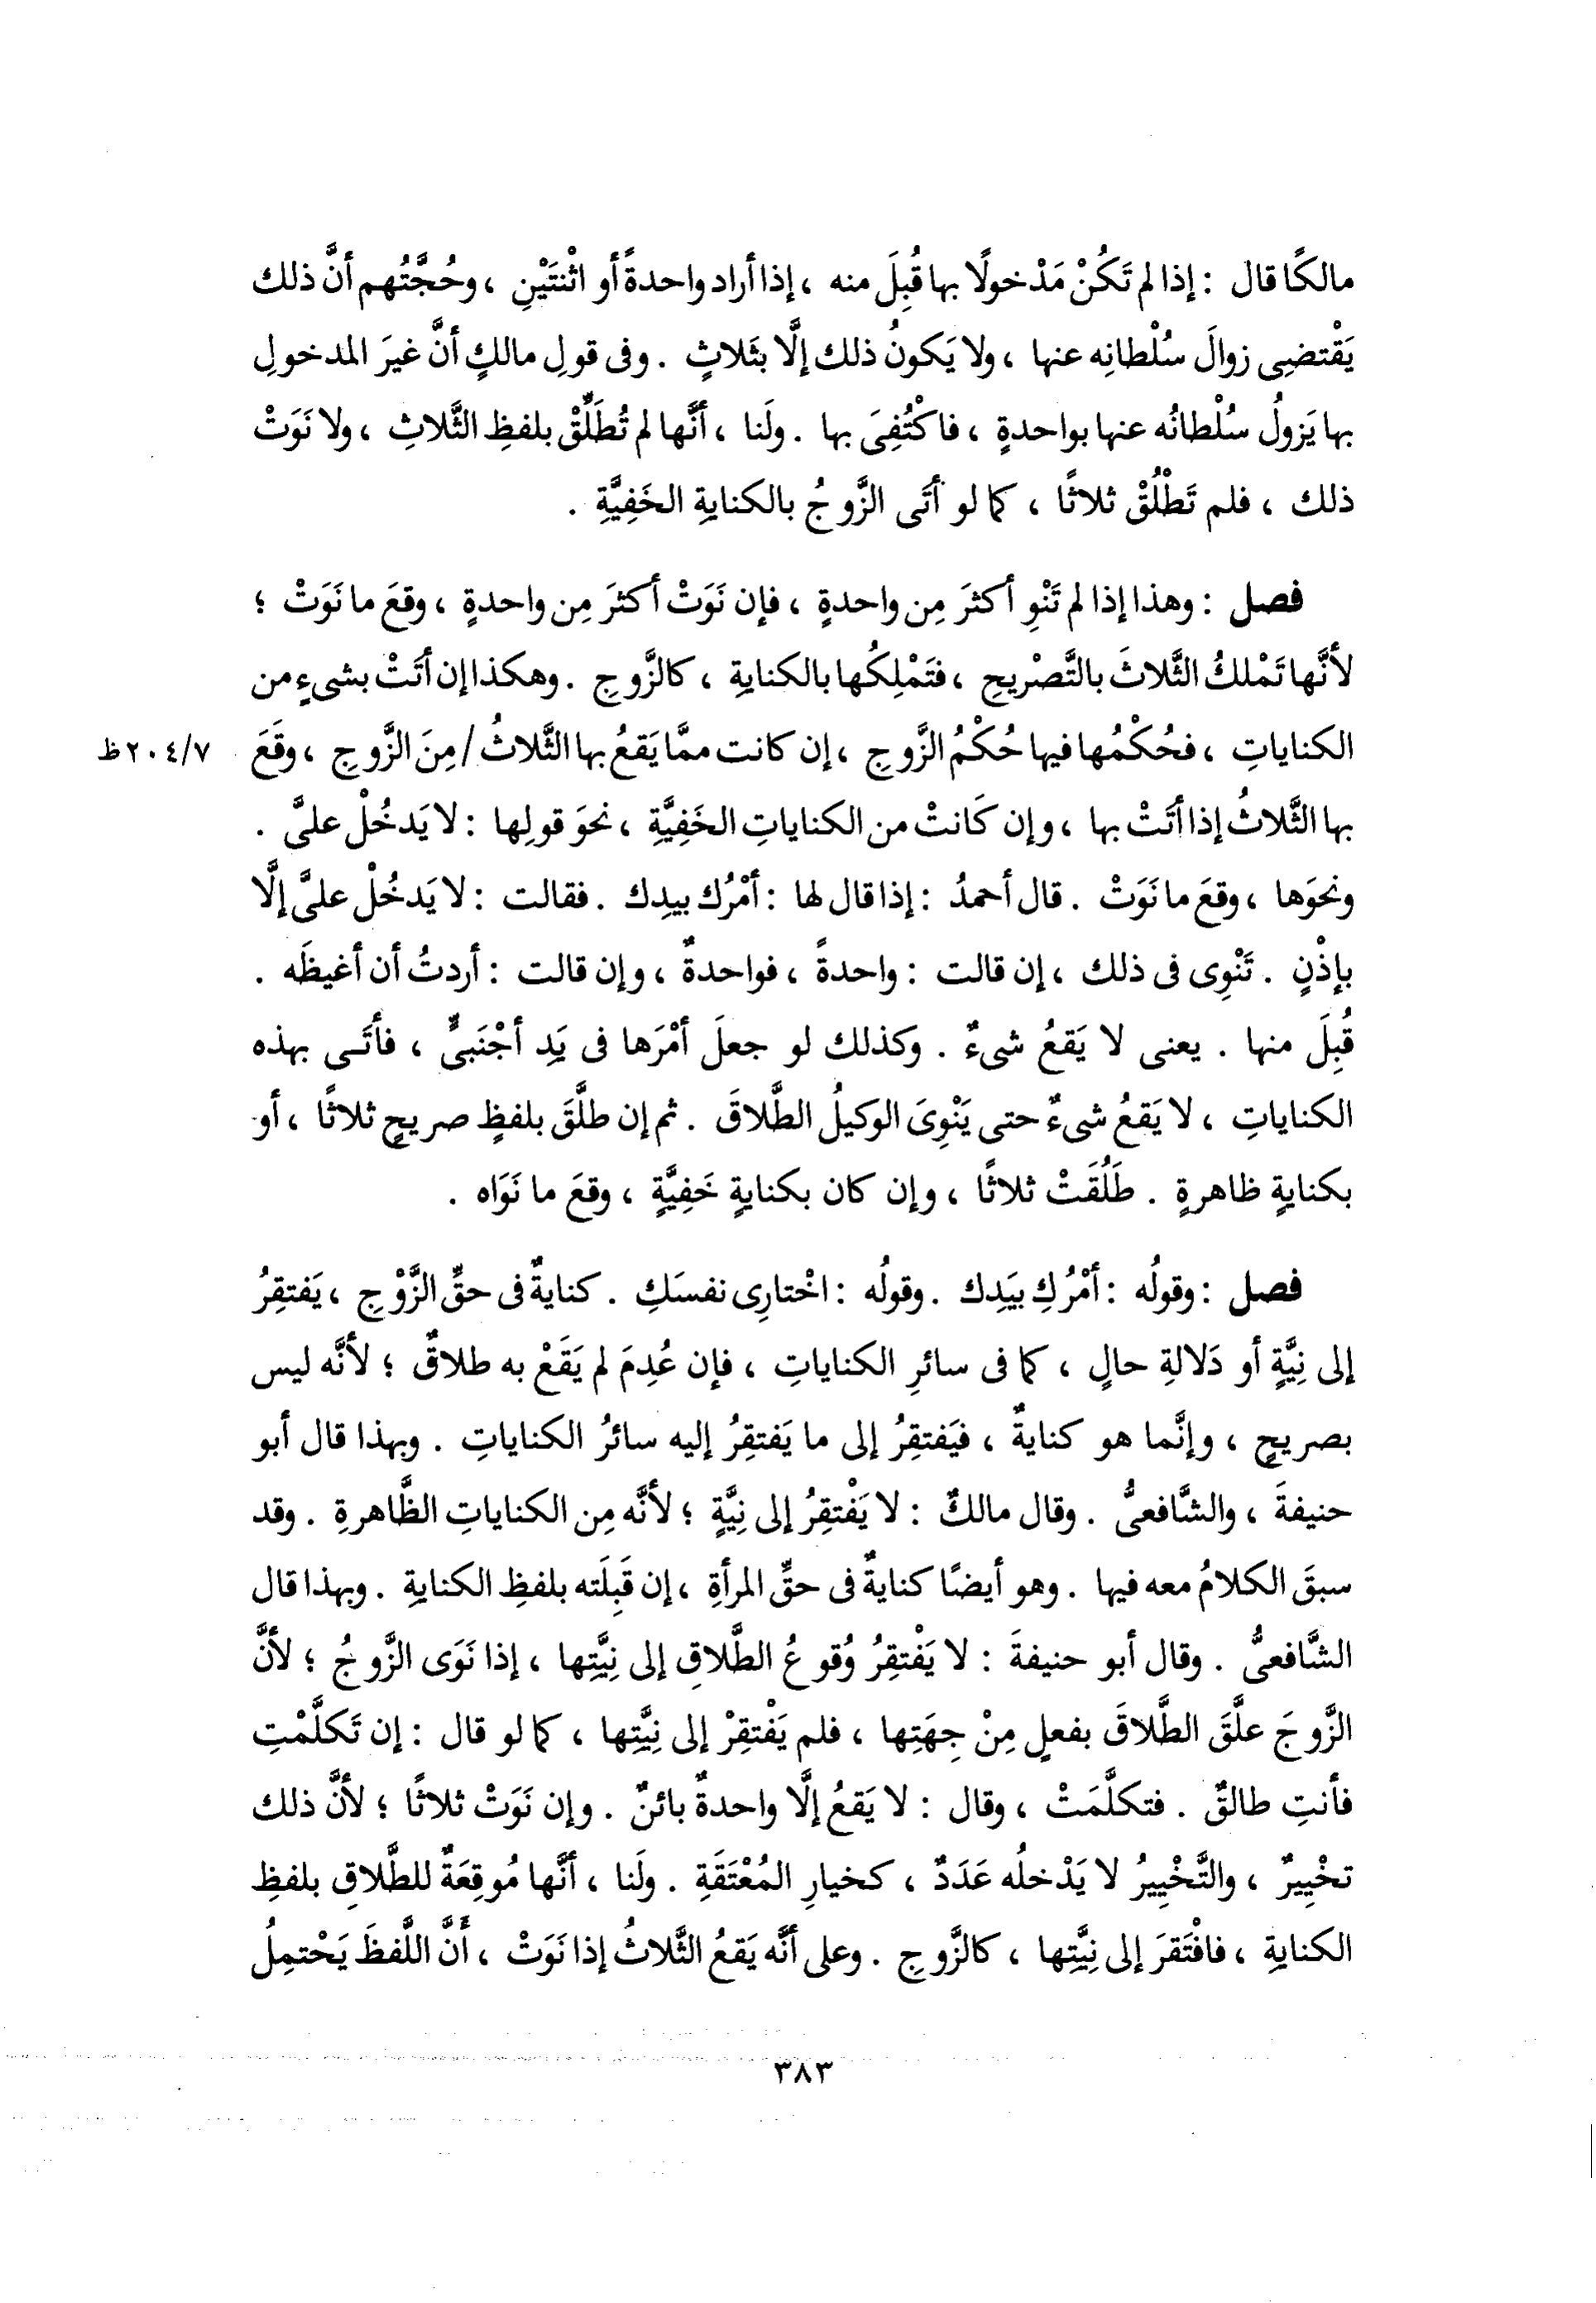 مالكًا قال : إذا لم تَكُنْ مَدْخولًا بها قُبِلَ منه ، إذا أراد واحدةً أو اثْنتَيْنِ ، وحُجَّتُهم أنَّ ذلك
يَقْتضِى زوالَ سُلْطانِه عنها ، ولا يَكونُ ذلك إلَّا بثَلاثٍ . وفى قولِ مالكٍ أنَّ غيرَ المدخولِ
بها يَزولُ سُلْطانُه عنها بواحدةٍ ، فاكْتُفِىَ بها . ولَنا ، أنَّها لم تُطَلِّقْ بلفظِ الثَّلاثِ ، ولا نَوَتْ
ذلك ، فلم تَطْلُقْ ثلاثًا ، كما لو أتَى الزَّوجُ بالكنايةِ الخَفِيَّةِ .
فصل : وهذا إذا لم تَنْوِ أكثرَ مِن واحدةٍ ، فإن نَوَتْ أكثرَ مِن واحدةٍ ، وقعَ ما نَوَتْ ؛
لأنَّها تَمْلكُ الثَّلاثَ بالتَّصْريحِ ، فتَمْلِكُها بالكنايةِ ، كالزَّوجِ . وهكذا إن أتَتْ بشىءٍ من
الكناياتِ ، فحُكْمُها فيها حُكْمُ الزَّوجِ ، إن كانت ممَّا يَقعُ بها الثَّلاثُ / مِنَ الزَّوجِ ، وقَعَ ٢٠٤/٧ظ
بها الثَّلاثُ إذا أتَتْ بها ، وإن كَانتْ من الكناياتِ الخَفِيَّةِ ، نحوَ قولِها : لا يَدخُلْ علىَّ .
ونحوَها ، وقعَ ما نَوَتْ . قال أحمدُ : إذا قال لها : أمْرُك بيدِك . فقالت : لا يَدخُلْ علىَّ إلَّا
بإذْنٍ . تَنْوِى فى ذلك ، إن قالت : واحدةً ، فواحدةٌ ، وإن قالت : أردتُ أن أغيظَه .
قُبِلَ منها . يعنى لا يَقعُ شىءٌ . وكذلك لو جعلَ أمْرَها فى يَدِ أجْنَبىٍّ ، فأتَى بهذه
الكناياتِ ، لا يَقعُ شىءٌ حتى يَنْوِىَ الوكيلُ الطَّلاقَ . ثم إن طلَّقَ بلفظٍ صريحٍ ثلاثًا ، أو
بكنايةٍ ظاهرةٍ . طَلُقَتْ ثلاثًا ، وإن كان بكنايةٍ خَفِيَّةٍ ، وقعَ ما نَوَاه .
فصل : وقولُه : أمْرُكِ بيَدِك . وقولُه : اخْتارِى نفسَكِ . كنايةٌ فى حقِّ الزَّوْجِ ، يَفتقِرُ
إلى نِيَّةٍ أو دَلالةِ حالٍ ، كما فى سائرِ الكناياتِ ، فإن عُدِمَ لم يَقَعْ به طلاقٌ ؛ لأنَّه ليس
بصريحٍ ، وإنَّما هو كنايةٌ ، فيَفتقِرُ إلى ما يَفتقِرُ إليه سائرُ الكناياتِ . وبهذا قال أبو
حنيفةَ ، والشَّافعىُّ . وقال مالكٌ : لا يَفْتقِرُ إلى نِيَّةٍ ؛ لأنَّه مِن الكناياتِ الظَّاهرةِ . وقد
سبقَ الكلامُ معه فيها . وهو أيضًا كنايةٌ فى حقِّ المرأةِ ، إن قَبِلَته بلفظِ الكنايةِ . وبهذا قال
الشَّافعىُّ . وقال أبو حنيفةَ : لا يَفْتقِرُ وُقوعُ الطَّلاقِ إلى نِيَّتِها ، إذا نَوَى الزَّوجُ ؛ لأنَّ
الزَّوجَ علَّقَ الطَّلاقَ بفعلٍ مِنْ جِهَتِها ، فلم يَفْتقِرْ إلى نِيَّتِها ، كما لو قال : إن تَكلَّمْتِ
فأنتِ طالقٌ . فتكلَّمَتْ ، وقال : لا يَقعُ إلَّا واحدةٌ بائنٌ . وإن نَوَتْ ثلاثًا ؛ لأنَّ ذلك
تخْيِيرٌ ، والتَّخْيِيرُ لا يَدْخلُه عَدَدٌ ، كخيارِ المُعْتَقَةِ . ولَنا ، أنَّها مُوقِعَةٌ للطَّلاقِ بلفظِ
الكنايةِ ، فافْتَقرَ إلى نِيَّتِها ، كالزَّوجِ . وعلى أنَّه يَقعُ الثَّلاثُ إذا نَوَتْ ، أنَّ اللَّفظَ يَحْتمِلُ
٣٨٣